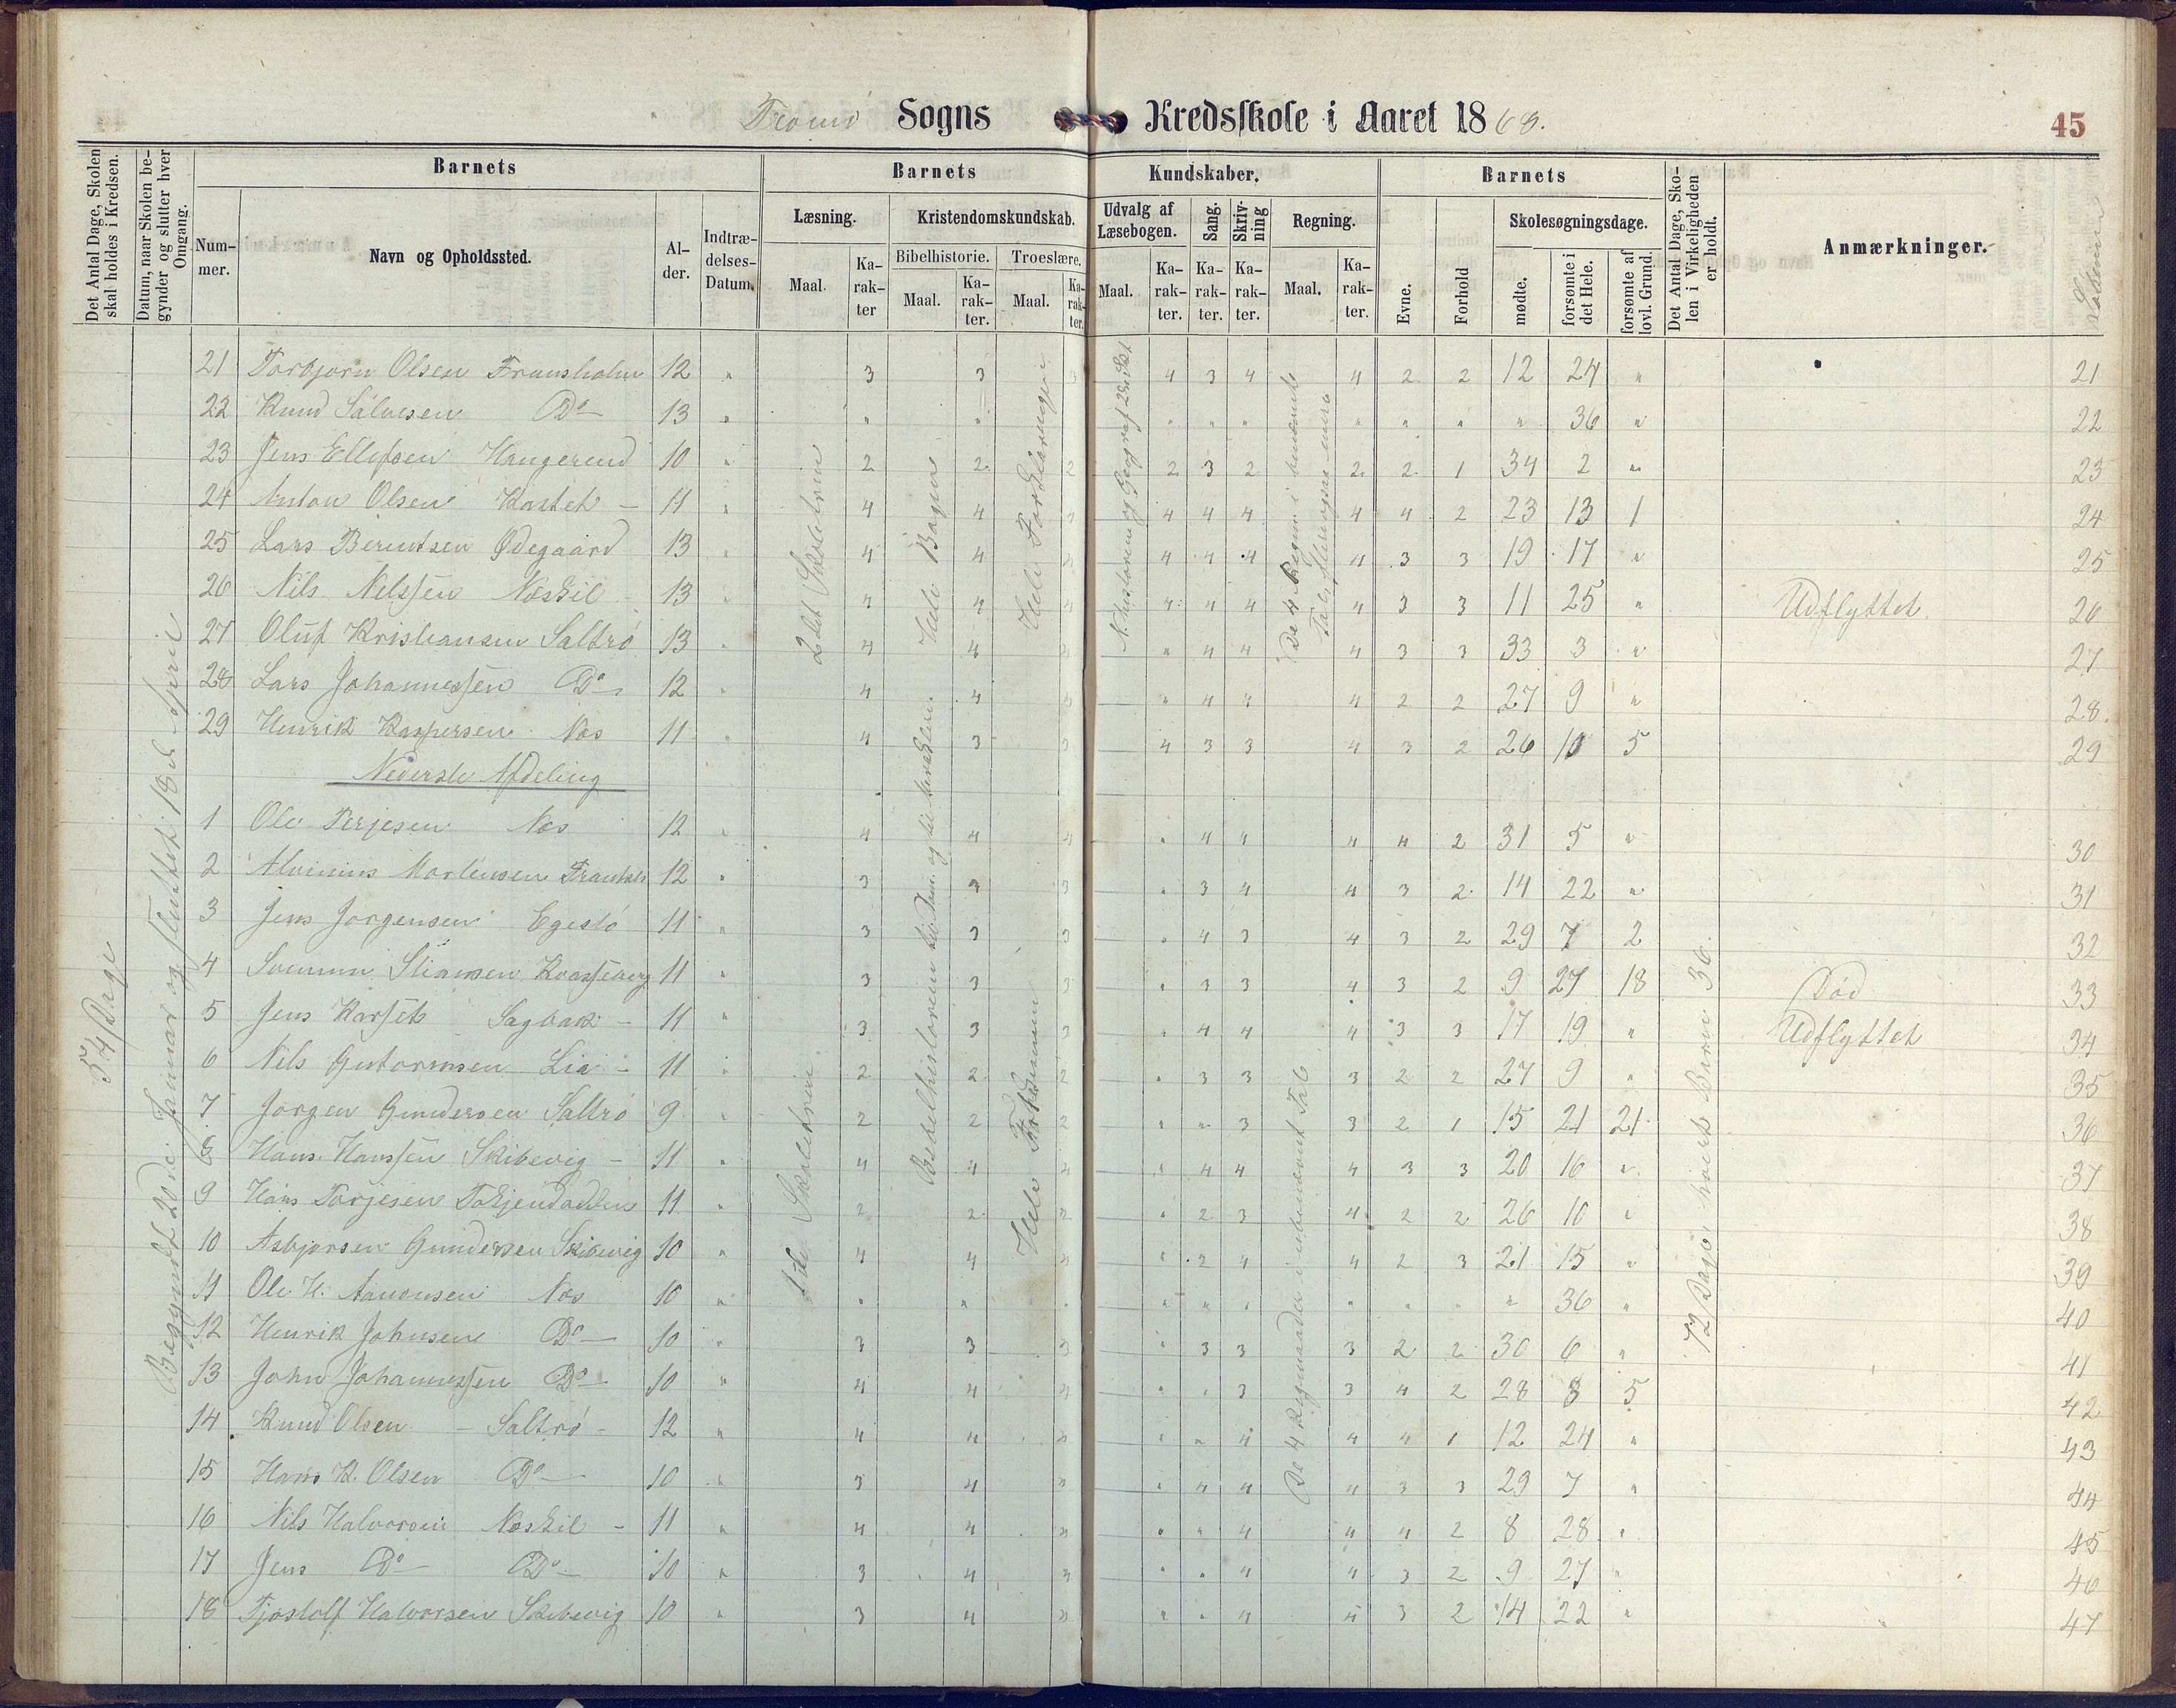 Tromö Sogns Kredsskole i Aaret 1868.
45
Det Antal Dage, Skolen skal holdes i Kredsen.
Datum, naar Skolen begynder og slutter hver Omgang.
Barnets
Nummer.
Navn og Opholdssted.
Alder.
Indtrædelses-Datum.
Barnets Kundskaber.
Læsning.
Maal.
Karakter
Kristendomskundskab.
Bibelhistorie.
Maal.
Karakter.
Troeslære.
Maal.
Karakter.
Udvalg af Læsebogen.
Maal.
Karakter.
Sang.
Karakter.
Skrivning
Karakter.
Regning.
Maal.
Karakter.
Barnets
Evne.
Forhold
Skolesøgningsdage.
mødte.
forsømte i det Hele.
forsømte af lovl. Grund.
Det Antal Dage, Skolen i Virkeligheden er holdt.
Anmærkninger.
54 Dage
Begyndt 20de Januar og sluttet 18de April
2det Skoletrin
Hele Bogen
Hele Forklaringen
1ste Skoletrin
72 Dage hvert Barn 36.
21 Torbjorn Olsen Fransholm 12 " 3 3 3 4 3 4 4 2 2 12 24 " 21
22 Knud Sálvesen Do 13 " " " " " " " " " " 36 " 22
23 Jens Ellefsen Hangerend 10 " 2 2 2 2 3 2 2 2 1 34 2 " 23
24 Anton Olsen Kastet 11 " 4 4 4 4 4 4 4 4 2 23 13 1 24
25 Lars Berentsen Ødegaard 13 " 4 4 4 4 4 4 4 3 3 19 17 " 25
26 Nils Nelssen Naskil 13 " 4 4 4 4 4 4 4 3 3 11 25 " Udflyttet 26
27 Oluf Kristiansen Saltrö 13 " 4 4 4 " 4 4 4 3 3 33 3 " 27
28 Lars Johannessen Do 12 " 4 4 4 " 4 4 4 2 2 27 9 " 28.
29 Henrik Kaspersen Næs 11 " 4 3 3 4 3 3 4 3 2 26 10 5 29
Nederste Afdeling
1 Ole Terjesen Næs 12 " 4 4 4 " 4 4 4 4 2 31 5 " 30
2 Alvinius Mortensen 12 " 3 3 3 " 3 4 4 3 2 14 22 " 31
3 Jens Jorgensen Egeslö 11 " 3 3 3 " 4 3 4 3 2 29 7 2 32
4 11 " 3 3 3 " 3 3 4 3 2 9 27 18 Död 33
5 Jens Sagbak 11 " 3 3 3 " 4 4 4 3 3 17 19 " Udflyttet 34
6 Nils Gutormsen Lia 11 " 2 2 2 " 3 3 3 2 2 27 9 " 35
7 Jorgen Gundersen Saltrö 9 " 2 2 2 " " 3 3 2 1 15 21 21 36
8 Hans Hanssen Skibevig 11 " 4 4 4 " 4 4 4 3 3 20 16 " 37
9 Hans Torjesen 11 " 2 2 2 " 2 3 4 2 2 26 10 " 38
10 Asbjorsen Gundersen Skibevig 10 " 4 4 4 " 2 4 4 2 3 21 15 " 39
11 Ole H. Aanonsen Næs 10 " " " " " " " " " " " 36 " 40
12 Henrik Johnsen Do 10 " 3 3 3 " 3 3 3 2 2 30 6 " 41
13 John Johannessen Do 10 " 4 4 4 " " 3 3 4 2 28 8 5 42
14 Knud Olsen Saltrö 12 " 4 4 " " " 4 4 4 1 12 24 " 43
15 Hans K. Olsen Do 10 " 3 4 " " 4 4 4 3 3 29 7 " 44
16 Nils Halvorsen Naskil 11 " 4 4 " " " 4 4 4 2 8 28 " 45
17 Jens Do Do 10 " 3 4 " " " 4 4 3 2 9 27 " 46
18 Fjostolf Halvorsen Skibevig 10 " 3 4 " " " 4 4 3 2 14 22 " 47